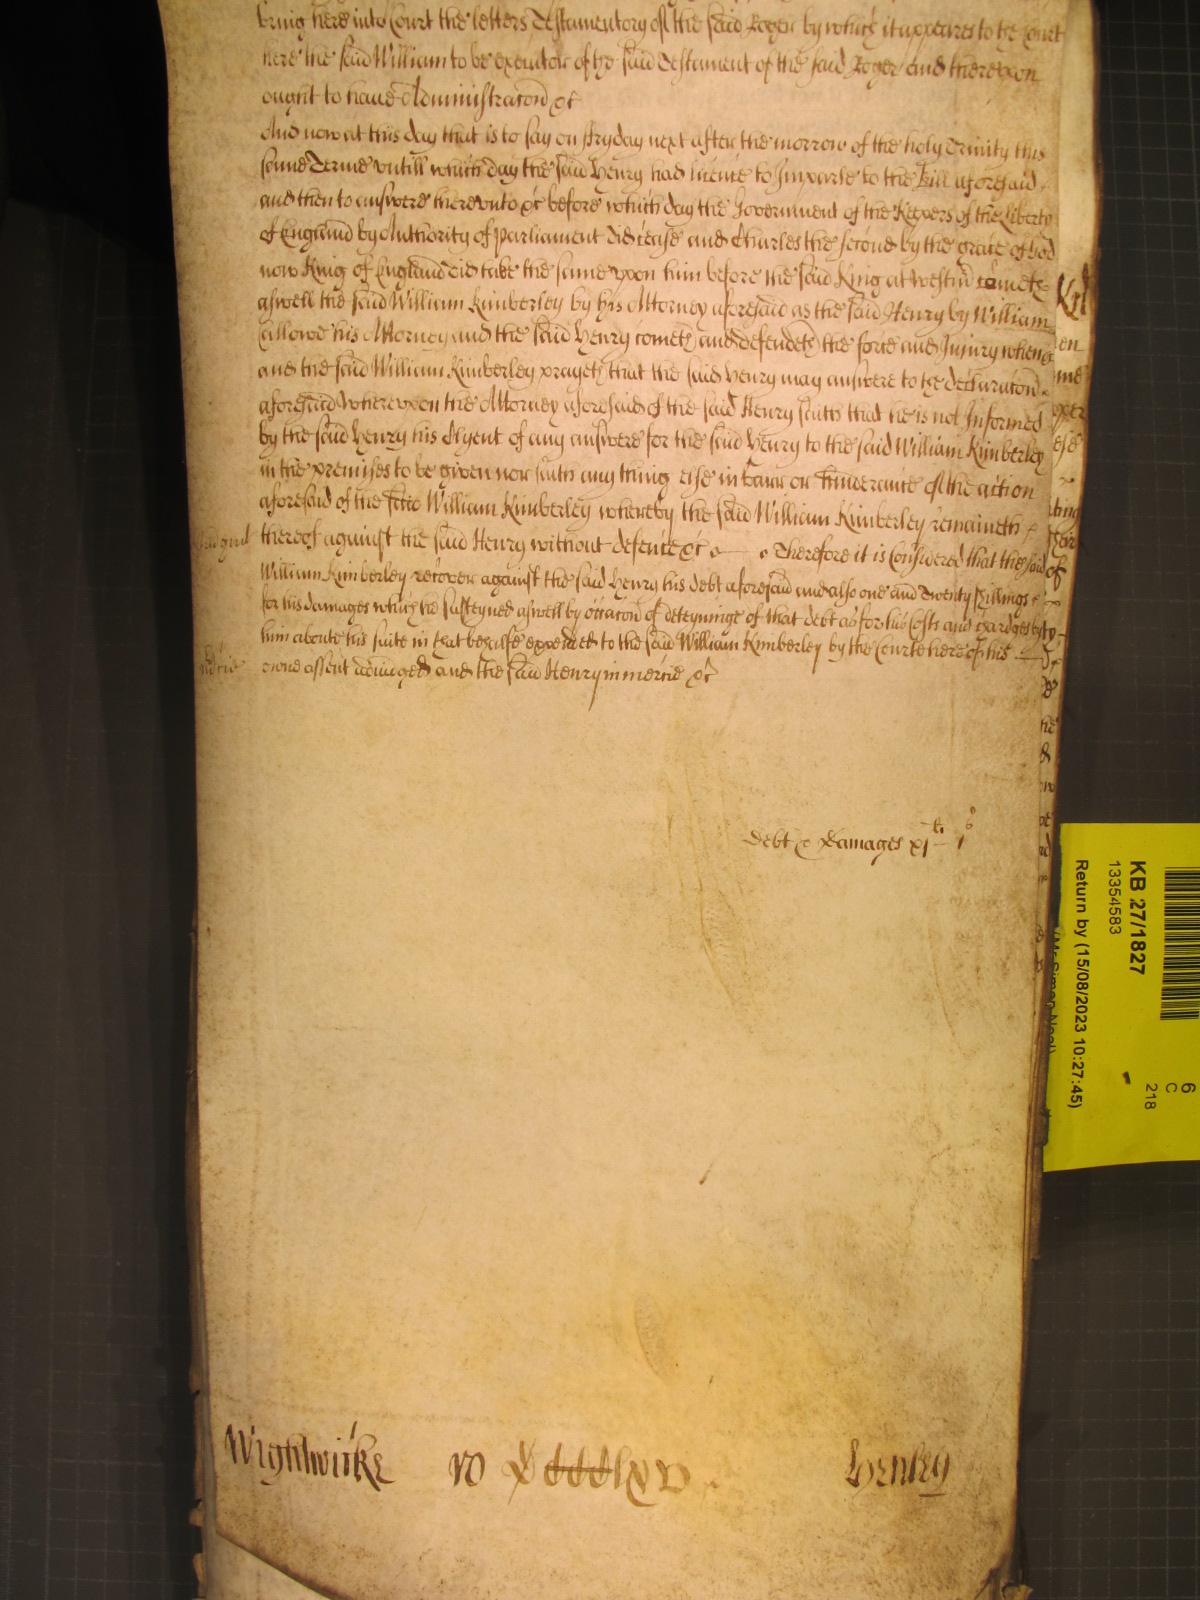 bring here into Court the letters Testamentory of the said Roger by which it appeares to the Court
here the said William to be executor of the said Testament of the said Roger and thereupon
ought to have Administracon &c
And now at this day that is to say on fryday next after the morrow of the holy Trinity this
same Terme untill which day the said Henry had licence to Imparle to the Bill aforesaid
and then to answere thereunto &c before which day the Government of the Keepers of the Liberty
of England by Authority of parliament did cease and Charles the second by the grace of God
now King of England did take the same upon him before the said King at Westm cometh
aswell the said William Kimberley by his Attorney aforesaid as the said Henry by William
Callowe his Attorney and the said Henry cometh and defendeth the force and Injury when &c
and the said William Kimberley prayeth that the said Henry may answere to the declaracon
aforesaid whereupon the Attorney aforesaid of the said Henry saith that he is not Informed
by the said Henry his Clyent of any answere for the said Henry to the said William Kimberley
in the premises to be given nor saith any thing else in barr or hinderance of the action
aforesaid of the said William Kimberley whereby the said William Kimberley remaineth
thereof against the said Henry without defence &c Therefore it is Considered that the said
William Kimberley recover against the said Henry his debt aforesaid and also one and Twenty shillings
for his damages which he susteyned aswell by occacon of deteyninge of that debt as for his Costs and Chardges by
him aboute his suite in that behalfe expended to the said William Kimberley by the Courte here of his
owne assent adiudged and the said Henry in mercie &c
debt & damages xjli js
Wightwicke ro Henley
KB 27/1827
13354583
Return by (15/08/2023 10:27:45)
6
C
218